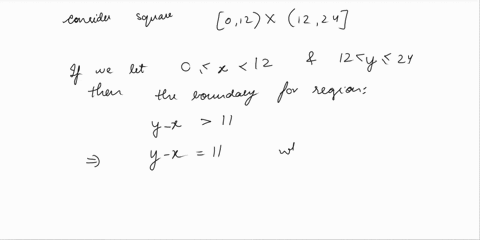 consider square [0,12) × (12,24]
If we let 0 ≤ x < 12 & 12 < y ≤ 24
then the boundary for region:
y-x > 11
⇒ y-x = 11 wh